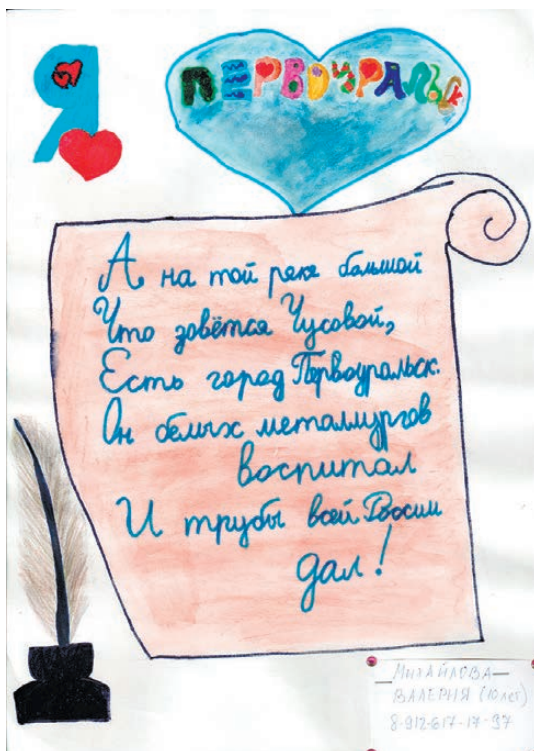 Я
ПЕРВОУРАЛЬСК
А на той реке большой
Что зовётся Чусовой,
Есть город Первоуральск.
Он белых металлургов
воспитал
И трубы всей России
дал!
МИХАЙЛОВА
ВАЛЕРИЯ (10 лет)
8-912-617-17-97